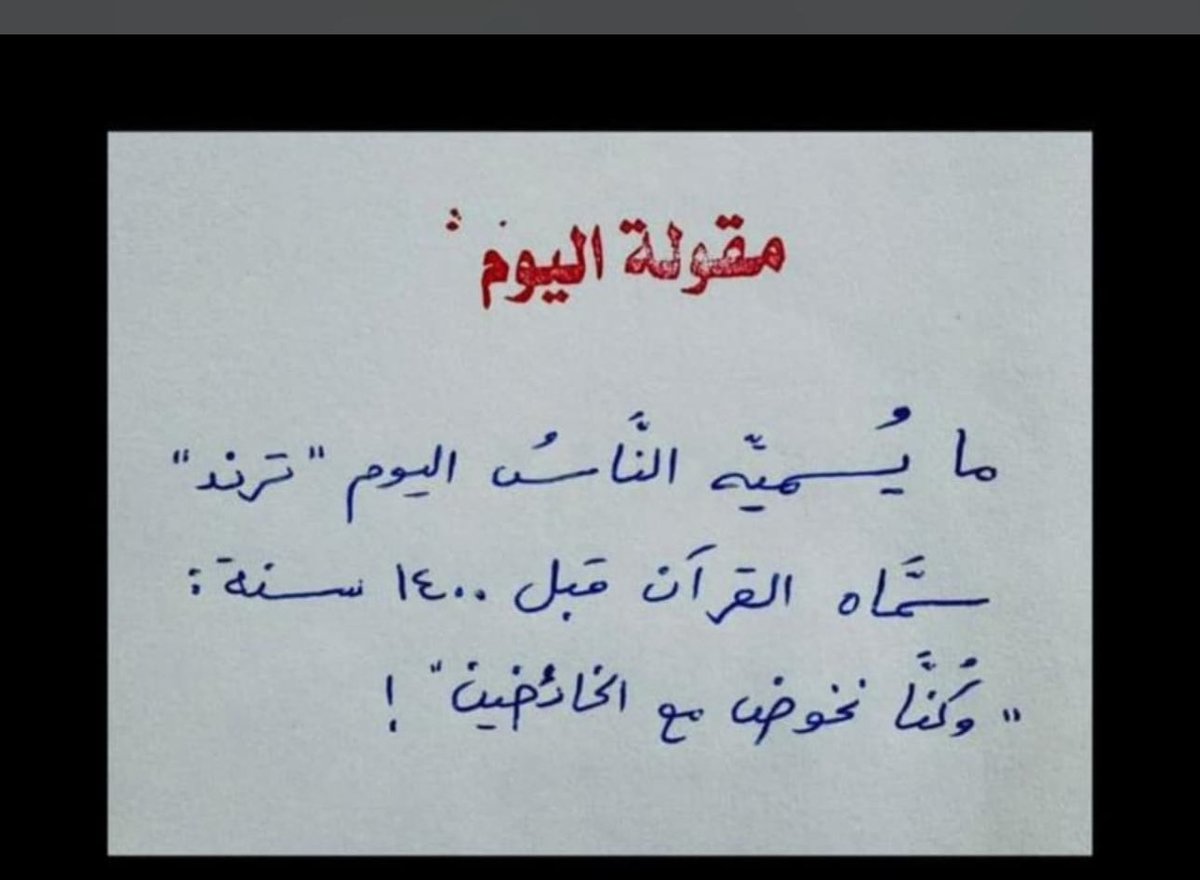 مقولة اليوم :
ما يُسميّه النَّاسُ اليوم "ترند"
سمَّاه القرآن قبل ١٤٠٠ سنة :
"وكُنَّا نخوض مع الخائضين" !